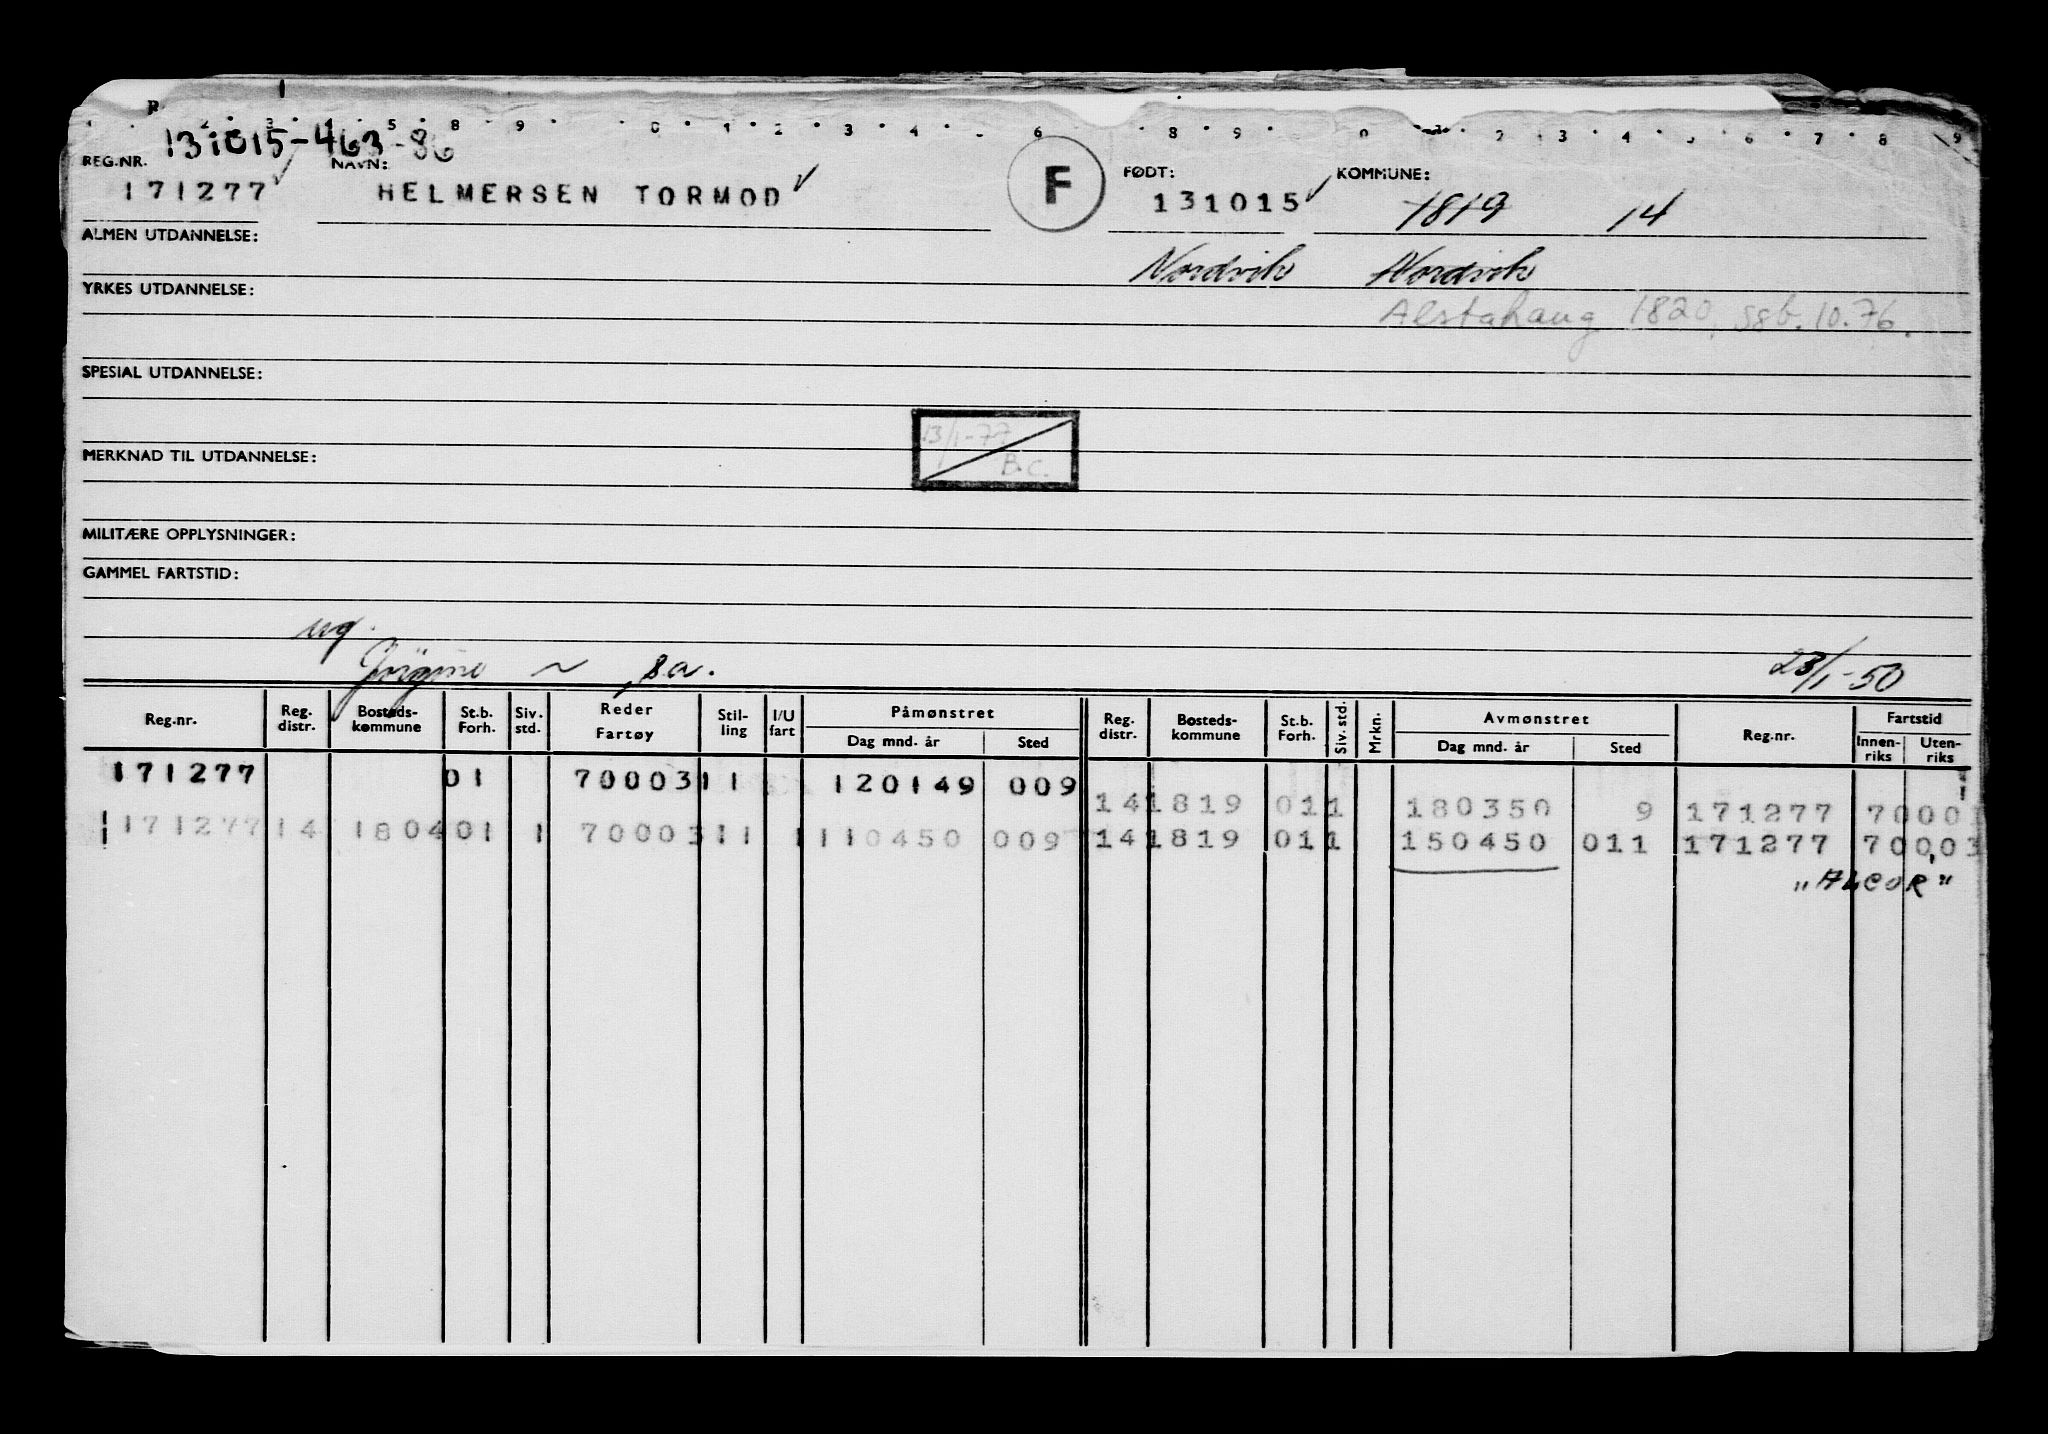 131015-463-86
REG.NR. NAVN: F FØDT: KOMMUNE:
171277 HELMERSEN TORMOD 131015 1819 14
ALMEN UTDANNELSE:
Nordvik Nordvik
YRKES UTDANNELSE:
Alstahaug 1820, sgb. 10.76.
SPESIAL UTDANNELSE:
13/1-77
B.C.
MERKNAD TIL UTDANNELSE:
MILITÆRE OPPLYSNINGER:
GAMMEL FARTSTID:
ug.
s.a. 23/1-50
Reg.nr. Reg. distr. Bosteds-kommune St.b. Forh. Siv. std. Reder Fartøy Stil-ling I/U fart Påmønstret Dag mnd. år Sted Reg. distr. Bosteds-kommune St.b. Forh. Siv. std. Mrkn. Avmønstret Dag mnd. år Sted Reg.nr. Fartstid Innen-riks Uten-riks
171277 01 70003 11 120149 009
14 1819 01 1 180350 9 171277 70003
171277 14 1804 01 1 70003 11 1 110450 009 14 1819 01 1 150450 011 171277 70003
"ALCOR"